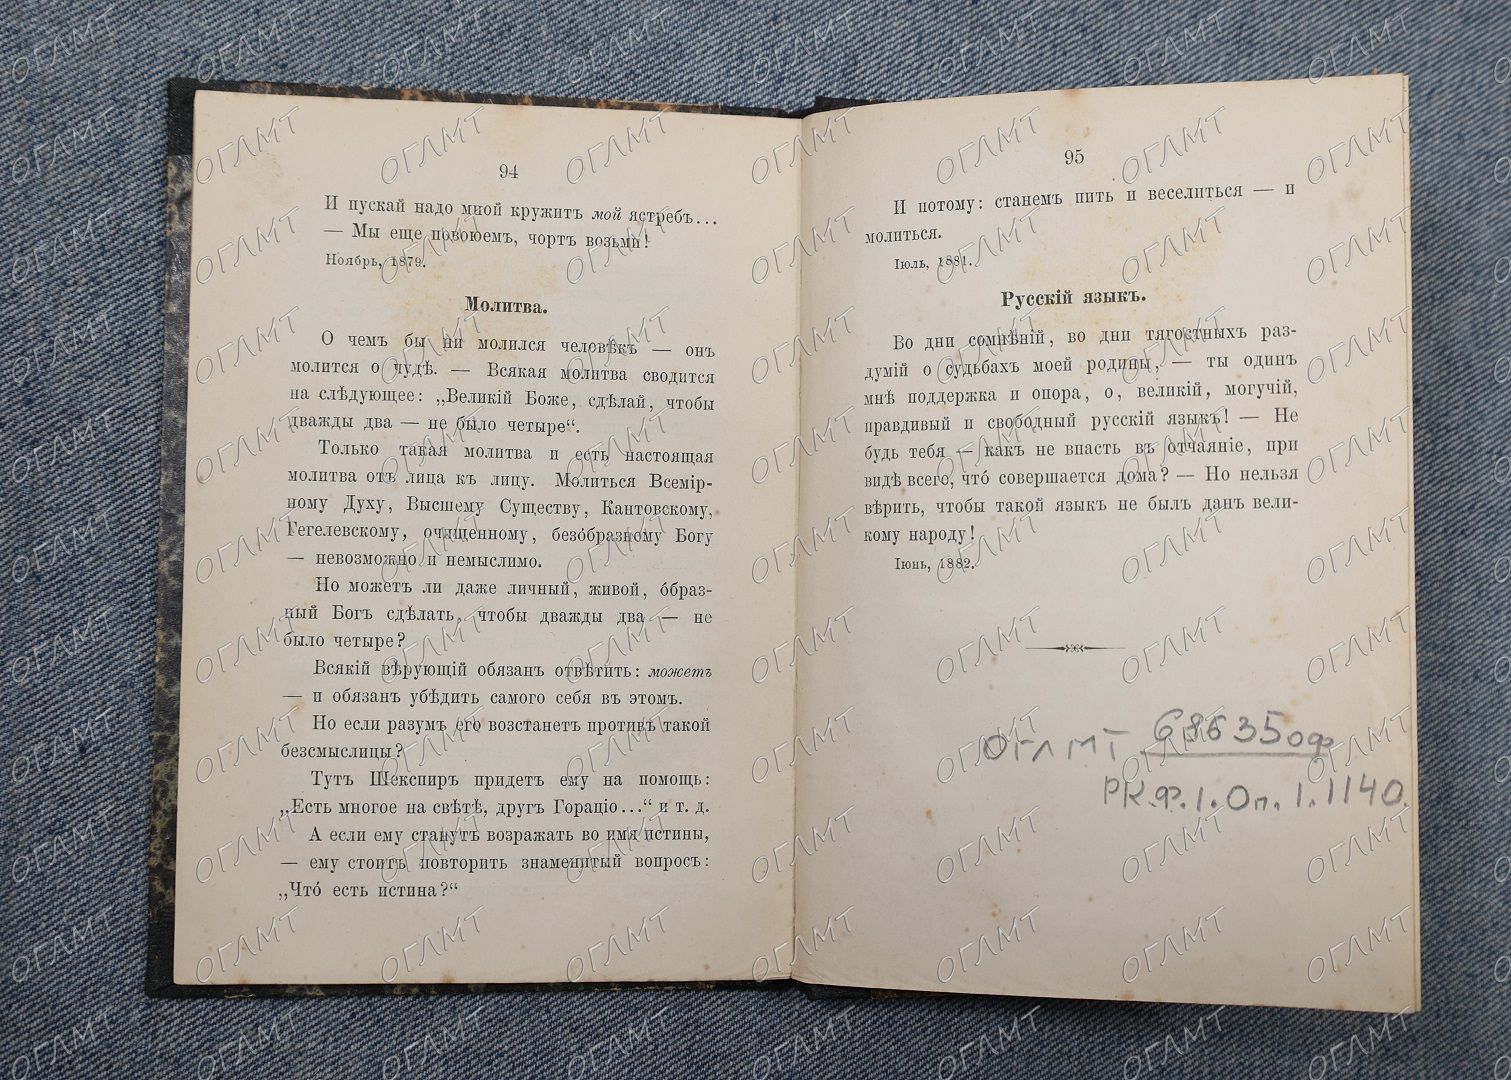 94
И пускай надо мной кружитъ мой ястребъ...
— Мы еще повоюемъ, чортъ возьми!
Ноябрь, 1879.
Молитва.
О чемъ бы ни молился человѣкъ — онъ
молится о чудѣ. — Всякая молитва сводится
на слѣдующее: „Великій Боже, сдѣлай, чтобы
дважды два — не было четыре“.
Только такая молитва и есть настоящая
молитва отъ лица къ лицу. Молиться Всемір-
ному Духу, Высшему Существу, Кантовскому,
Гегелевскому, очищенному, безо́бразному Богу
— невозможно и немыслимо.
Но можетъ ли даже личный, живой, о́браз-
ный Богъ сдѣлать, чтобы дважды два — не
было четыре?
Всякій вѣрующій обязанъ отвѣтить: можетъ
— и обязанъ убѣдить самого себя въ этомъ.
Но если разумъ его возстанетъ противъ такой
безсмыслицы?
Тутъ Шекспиръ придетъ ему на помощь:
„Есть многое на свѣтѣ, другъ Гораціо...“ и т. д.
А если ему станутъ возражать во имя истины,
— ему стоитъ повторить знаменитый вопросъ:
„Что́ есть истина?“
95
И потому: станемъ пить и веселиться — и
молиться.
Іюль, 1881.
Русскій языкъ.
Во дни сомнѣній, во дни тягостныхъ раз-
думій о судьбахъ моей родины, — ты одинъ
мнѣ поддержка и опора, о, великій, могучій,
правдивый и свободный русскій языкъ! — Не
будь тебя — какъ не впасть въ отчаяніе, при
видѣ всего, что́ совершается дома? — Но нельзя
вѣрить, чтобы такой языкъ не былъ данъ вели-
кому народу!
Іюнь, 1882.
ОГЛМТ 68635оф
РК.Ф.1.Оп.1.1140.